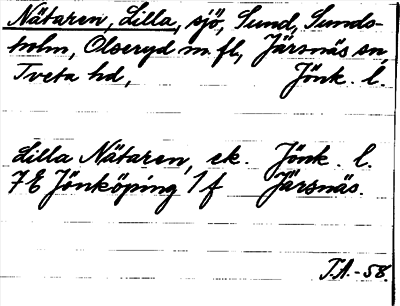 Nätaren, Lilla, sjö, Sund, Sunds-
holm, Olseryd m. fl, Järsnäs sn,
Tveta hd, Jönk. l.
Lilla Nätaren, ek. Jönk. l.
7E Jönköping 1f Järsnäs.
T.A.-58.